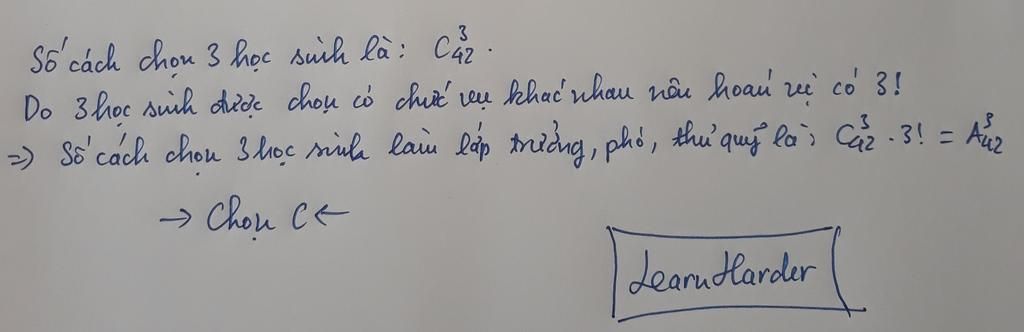 Số cách chọn 3 học sinh là: C³₄₂.
Do 3 học sinh được chọn có chức vụ khác nhau nên hoán vị có 3!
=> Số cách chọn 3 học sinh làm lớp trưởng, phó, thủ quỹ là: C³₄₂ . 3! = A³₄₂
→ Chọn C ←
LearnHarder